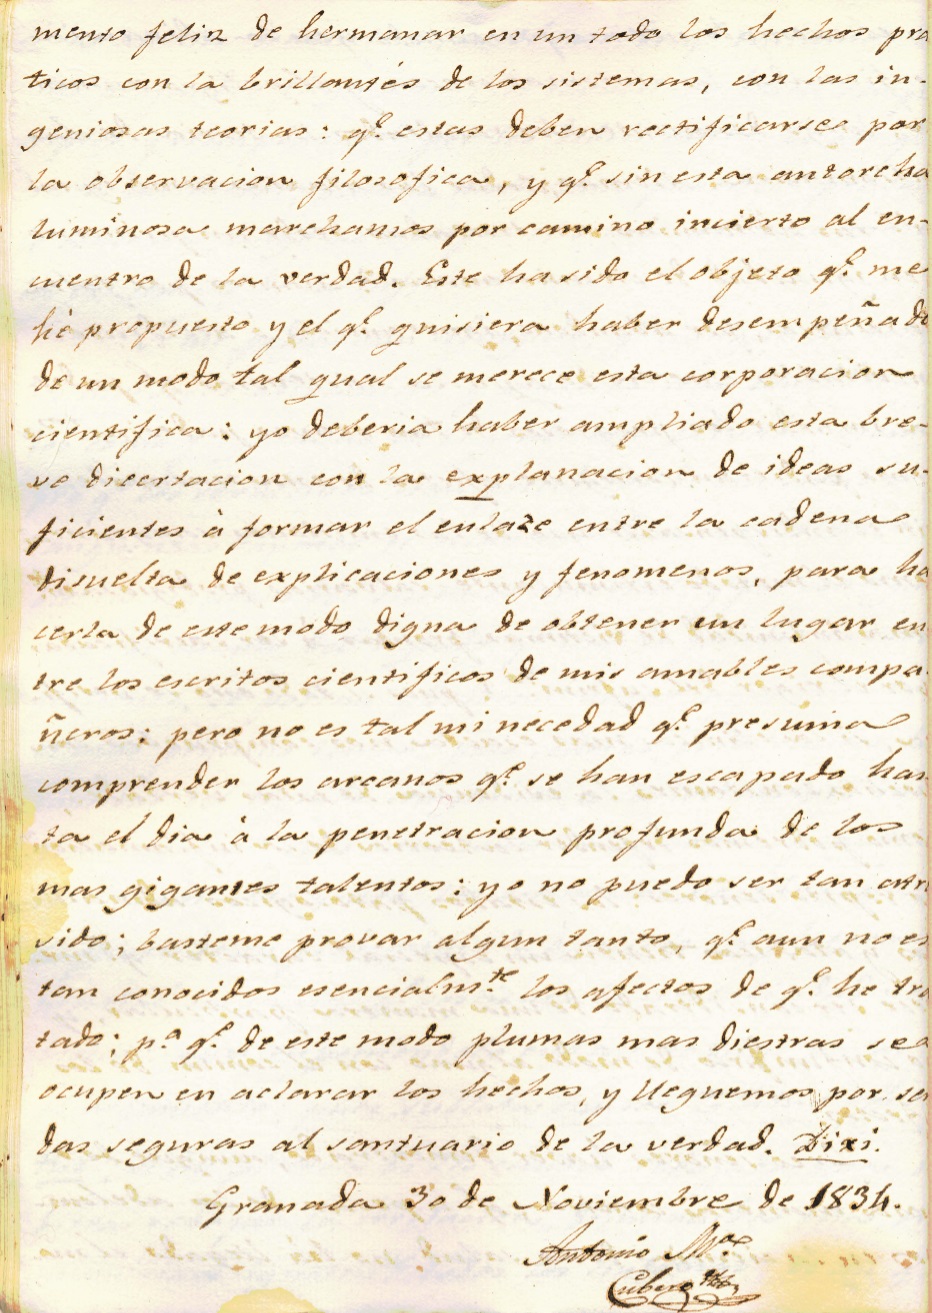 mento feliz de hermanar en un todo los hechos pra
ticos con la brillantés de los sistemas, con las in-
geniosas teorias: q.e estas deben rectificarse por
la observacion filosofica, y q.e sin esta antorcha
luminosa marchamos por camino incierto al en-
cuentro de la verdad. Este ha sido el objeto q.e me
hé propuesto y el q.e quisiera haber desempeñado
de un modo tal qual se merece esta corporacion
cientifica: yo deberia haber ampliado esta bre-
ve dicertacion con la explanacion de ideas su-
ficientes à formar el enlaze entre la cadena
disuelta de explicaciones y fenomenos, para ha
cerla de este modo digna de obtener un lugar en
tre los escritos cientificos de mis amables compa-
ñeros: pero no es tal mi necedad q.e presuma
comprender los arcanos q.e se han escapado has
ta el dia à la penetracion profunda de los
mas gigantes talentos: yo no puedo ser tan atre
vido; basteme provar algun tanto, q.e aun no es
tan conocidos esencialm.te los afectos de q.e he tra
tado; p.a q.e de este modo plumas mas diestras se
ocupen en aclarar los hechos, y lleguemos por sen
das seguras al santuario de la verdad. Dixi.
Granada 30 de Noviembre de 1834.
Antonio M.a
Cubero